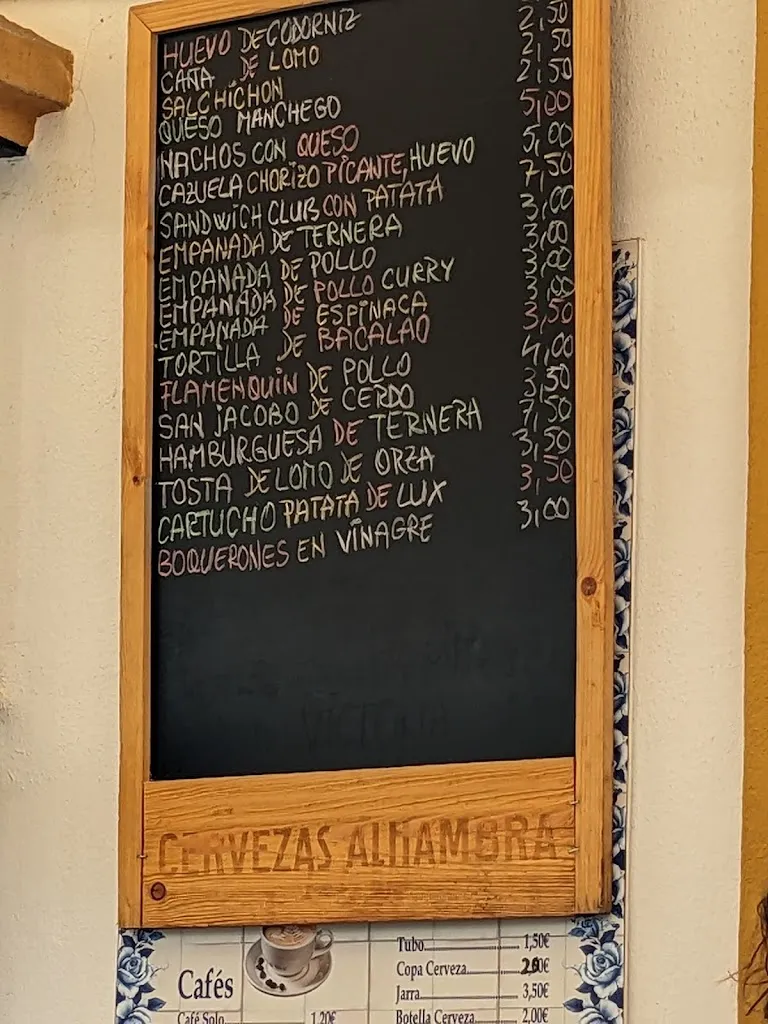 HUEVO DE CODORNIZ
CAÑA DE LOMO 2,50
SALCHICHON 2,50
QUESO MANCHEGO 2,50
NACHOS CON QUESO 5,00
CAZUELA CHORIZO PICANTE, HUEVO 5,00
SANDWICH CLUB CON PATATA 7,50
EMPANADA DE TERNERA 3,00
EMPANADA DE POLLO 3,00
EMPANADA DE POLLO CURRY 3,00
EMPANADA DE ESPINACA 3,00
TORTILLA DE BACALAO 3,50
FLAMENQUIN DE POLLO 4,00
SAN JACOBO DE CERDO 3,50
HAMBURGUESA DE TERNERA 7,50
TOSTA DE LOMO DE ORZA 3,50
CARTUCHO PATATA DE LUX 3,50
BOQUERONES EN VINAGRE 3,00
CERVEZAS ALHAMBRA
Cafés
Café Solo 1,20€
Tubo 1,50€
Copa Cerveza
Jarra 3,50€
Botella Cerveza 2,00€